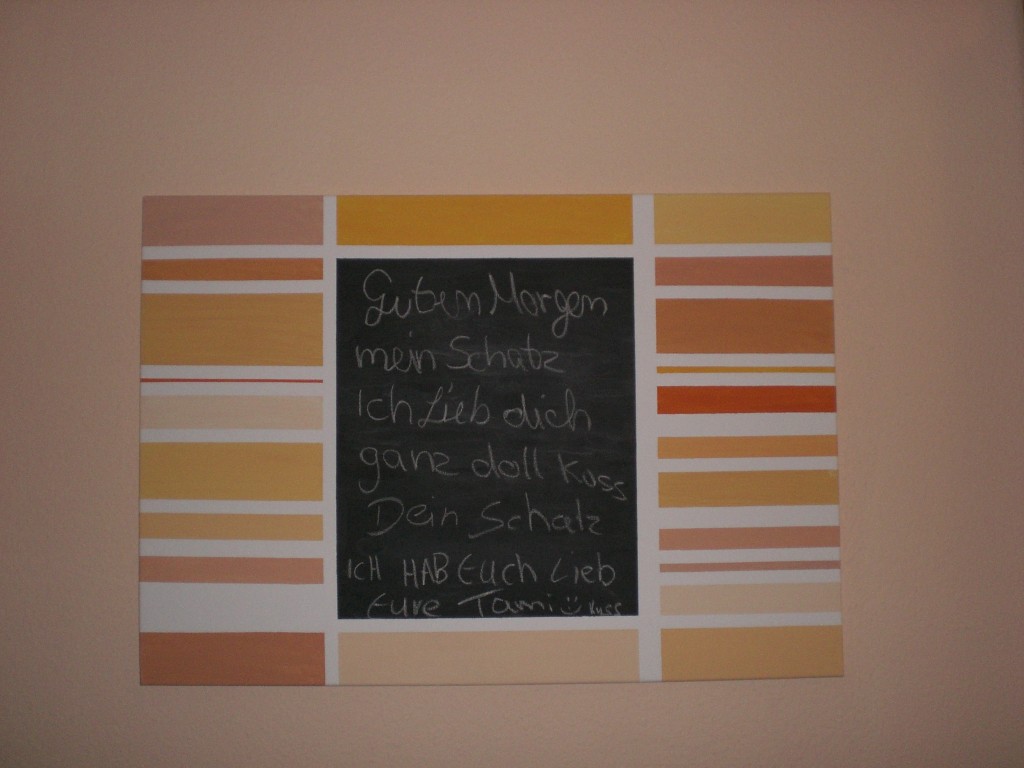 Guten Morgen
mein Schatz
Ich Lieb dich
ganz doll Kuss
Dein Schatz
ICH HAB Euch Lieb
Eure Tami☺ Kuss